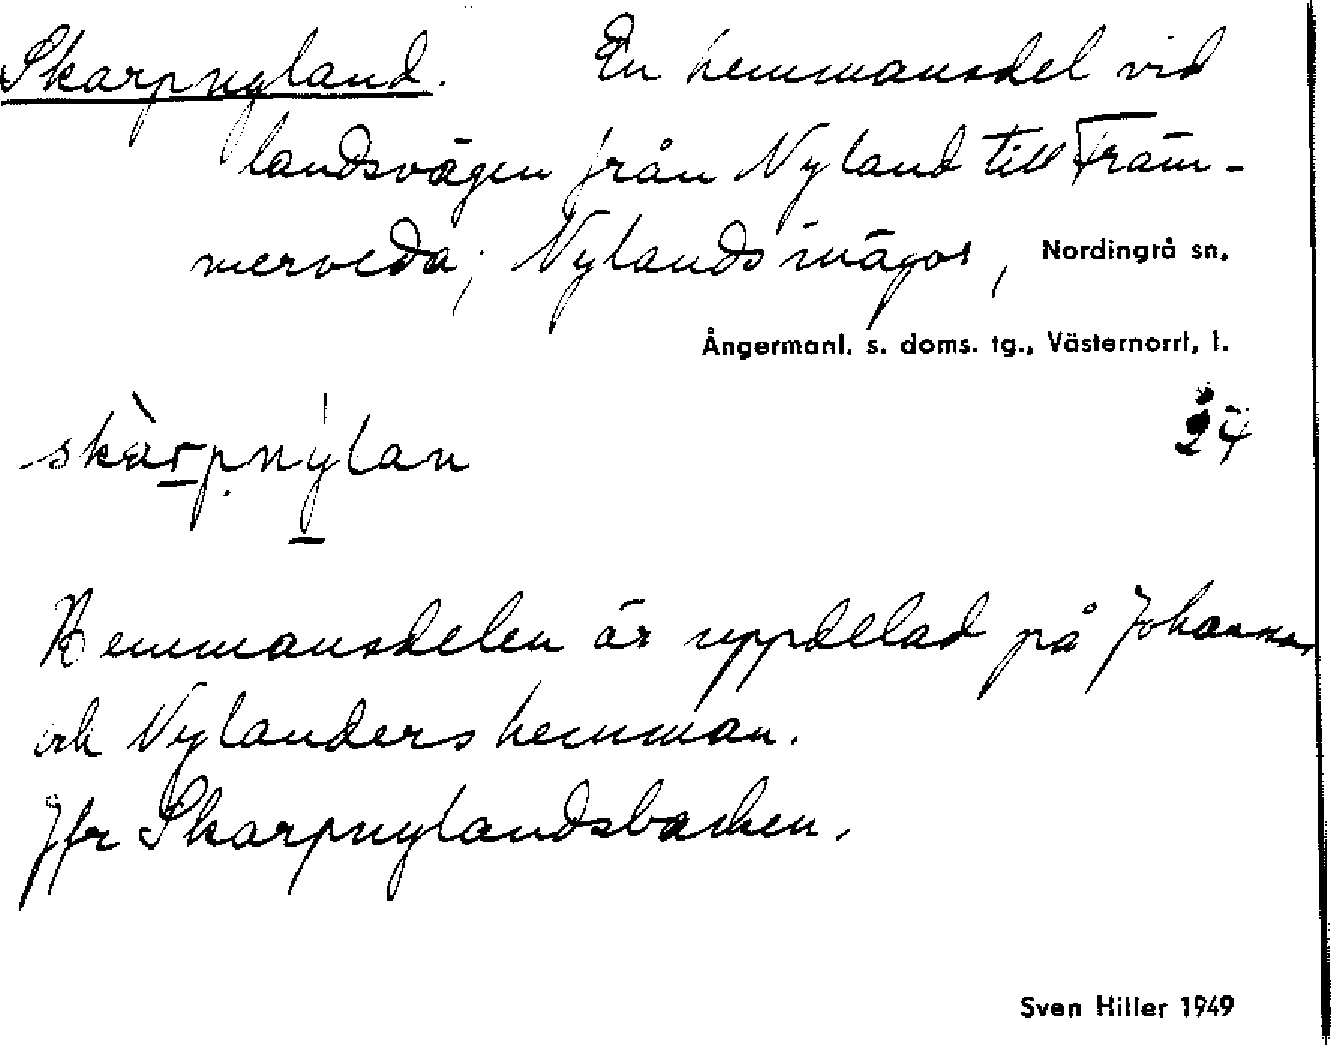 Skarpnyland. En hemmansdel vid
landsvägen från Nyland till Främ-
merveda; Nylands inägor, Nordingrå sn,
Ångermanl. s. doms. tg., Västernorrl. l.
skàrpnýlan
24
Hemmansdelen är uppdelad på Johannes
och Nylanders hemman.
Jfr Skarpnylandsbacken.
Sven Hiller 1949